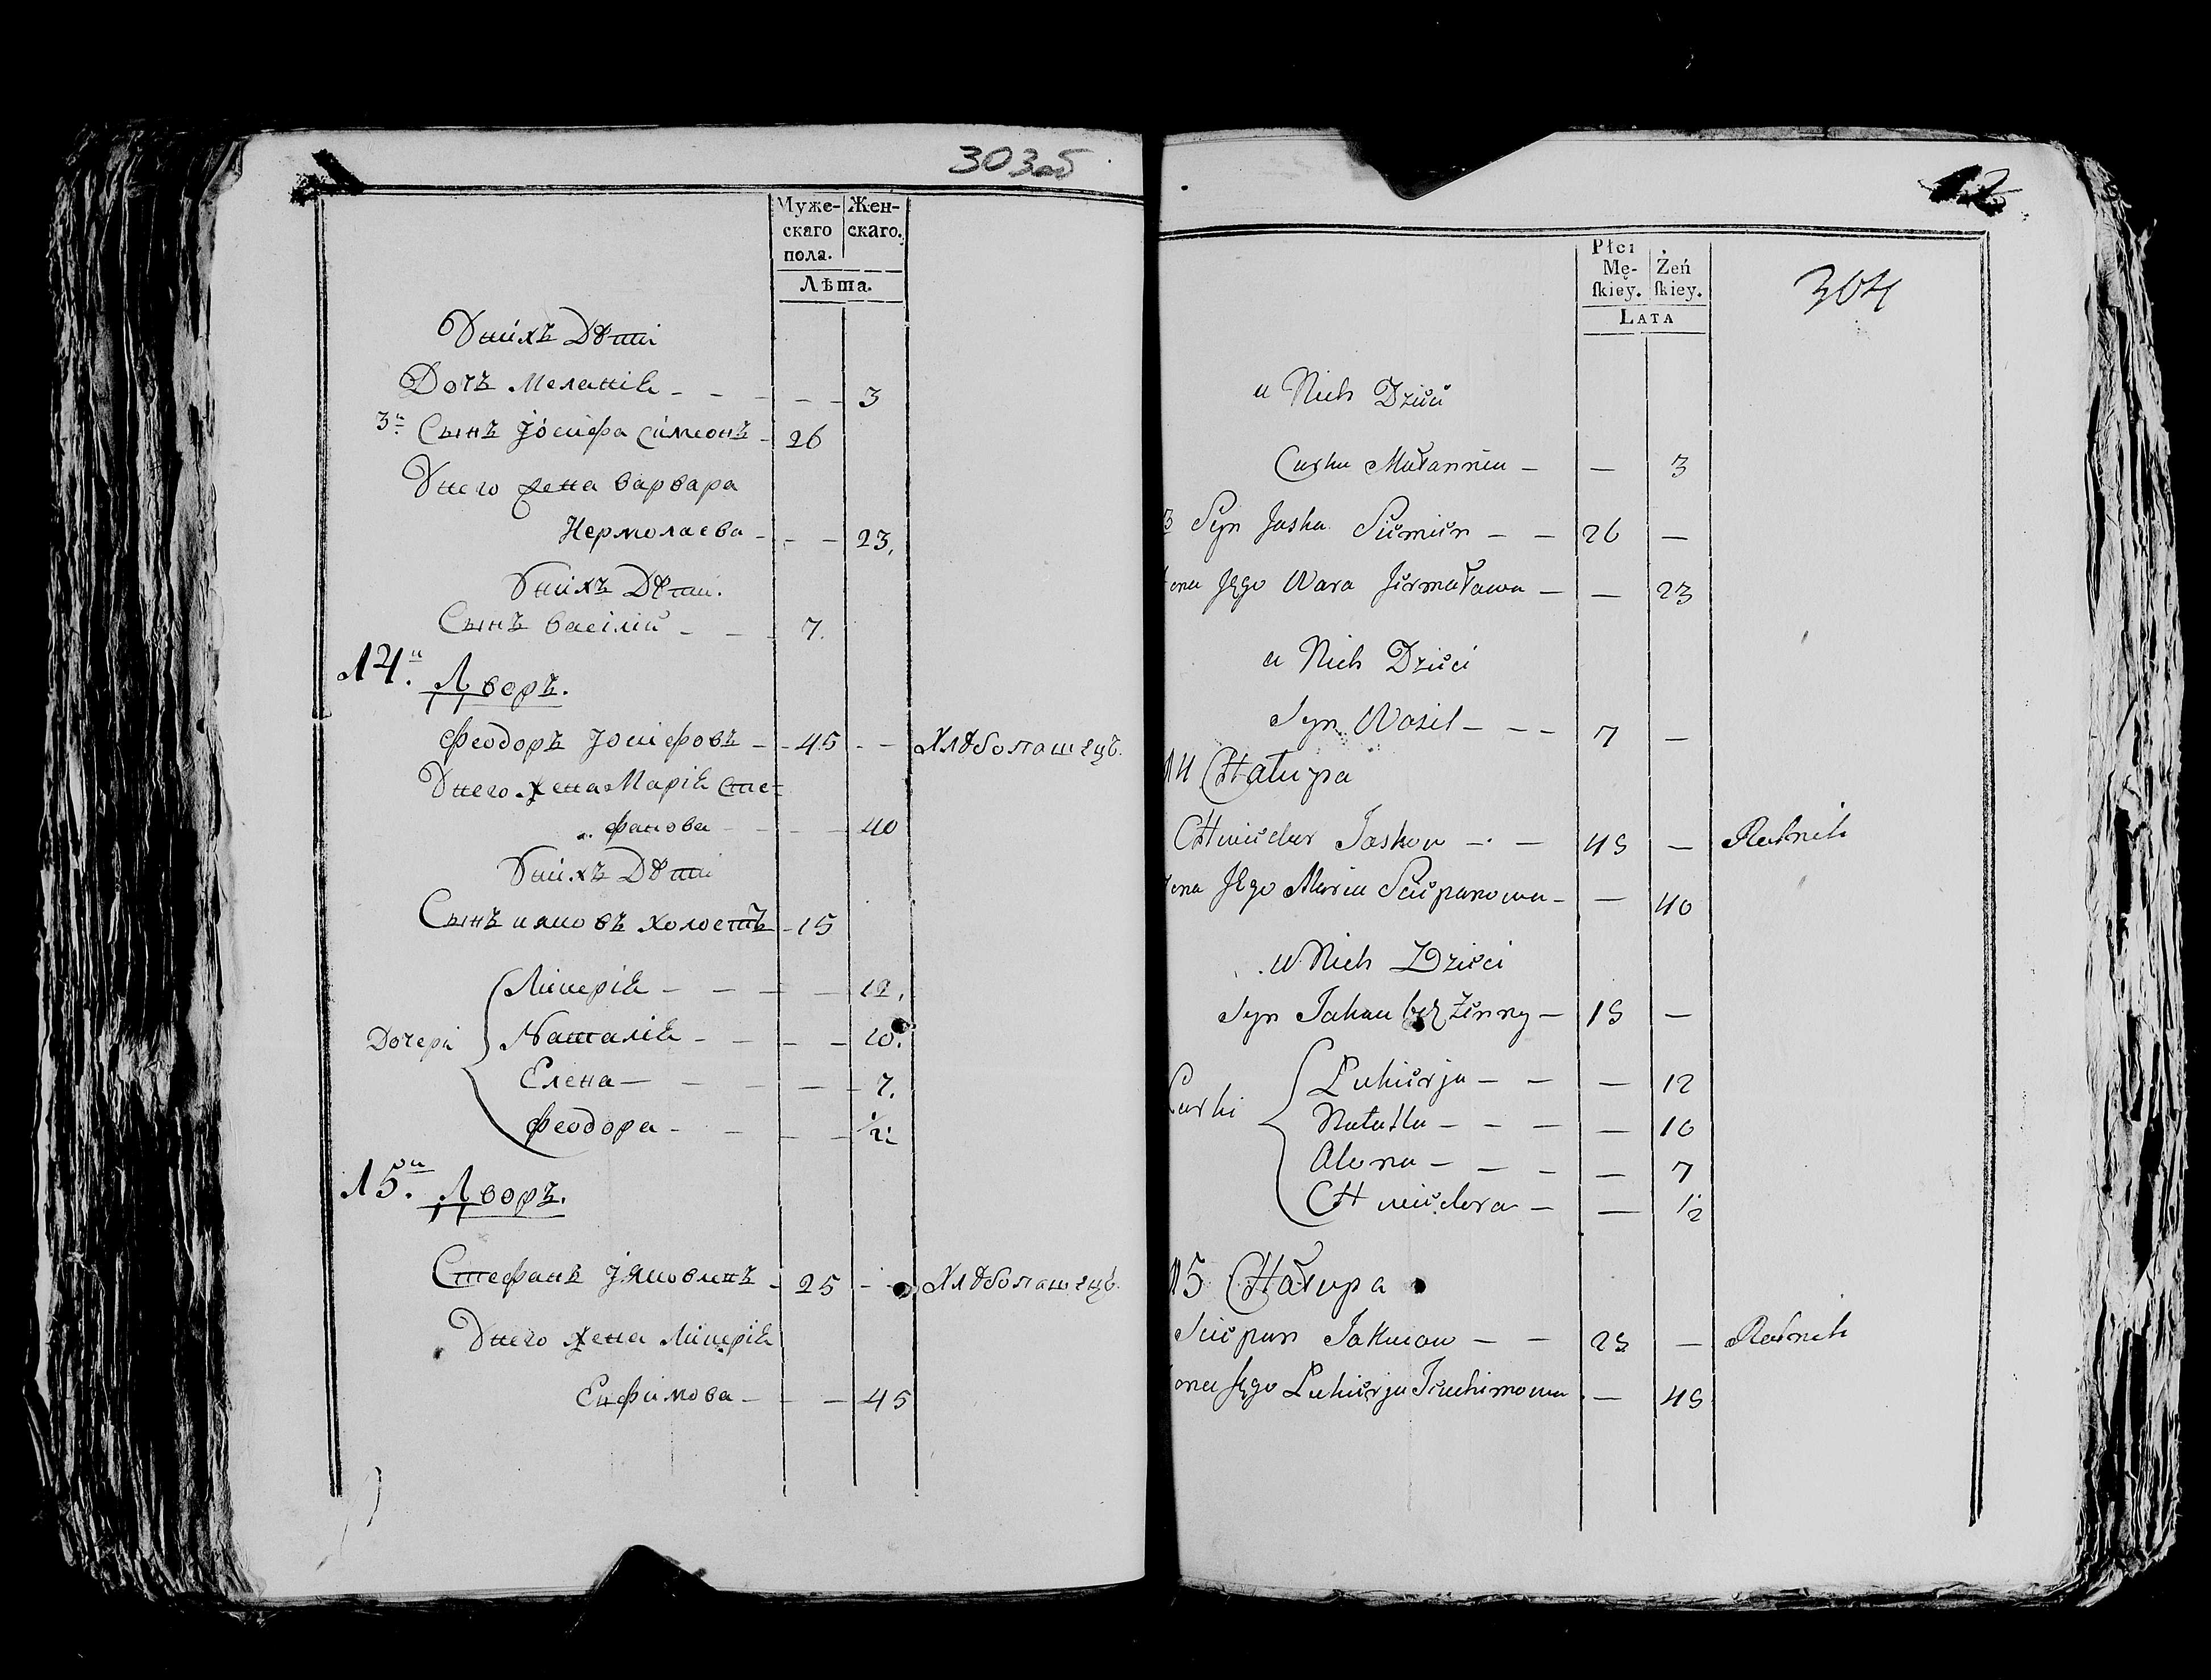 303об
Муже- Жен-
скаго скаго.
пола.
Лѣта.
Унихъ Дѣти
Дочь Меланія - - - - 3
3й Сынъ Іосифа Симеонъ - 26
Унего жена варвара
Нермолаева - - - 23.
Унихъ Дѣти.
Сынъ василий - - - 7.
14й. Дворъ.
Феодоръ Іосифовъ - - 45 - - Хлѣбопашецъ.
Унего жена Марія Сте-
фанова - - - 40
Унихъ Дѣти
Сынъ иаковъ холостъ - 15
Ликерія - - - - 12.
Дочери Наталія - - - - 10.
Елена - - - - - 7.
Феодора - - - - 1/2.
15й. Дворъ.
Стефанъ Іяковлевъ - 25 - - Хлѣбопашецъ.
Унего жена Ликерія
Ечфимова - - - 45
12
304
Płci
Mę- Żeń
ſkiey. ſkiey.
LATA
u Nich Dzieci
Curka Małannia - - 3
3 Syn Jaska Siemien - - 26 -
ona Jego Wara Jermaława - - 23
u Nich Dzieci
Syn Wasil - - - 7 -
14 Chałupa
Chwiedor Jaskow - - 45 - Rolnik
ona Jego Maria Sciepanowa - - 40
u Nich Dzieci
Syn Jakau bez Żenny - 15 -
Luhierja - - - 12
Curki Natalla - - - - 10
Alena - - - - 7
Chwiedora - - 1/2
15 Chałupa
Sciepan Jakuow - - 25 - Rolnik
ona Jego Luhierja Jeuchimowa - 45